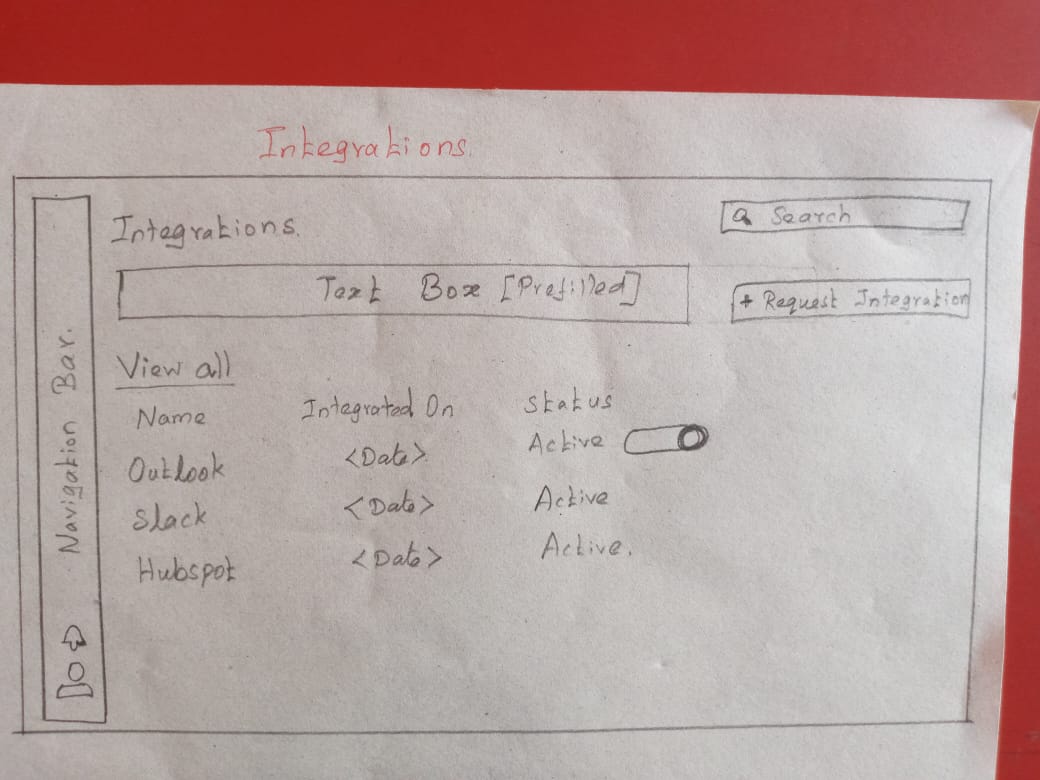 Integrations.
Integrations.
Search
Text Box [Prefilled]
+ Request Integration
View all
Name Integrated On Status
Outlook <Date> Active
Slack <Date> Active
Hubspot <Date> Active.
Navigation Bar.